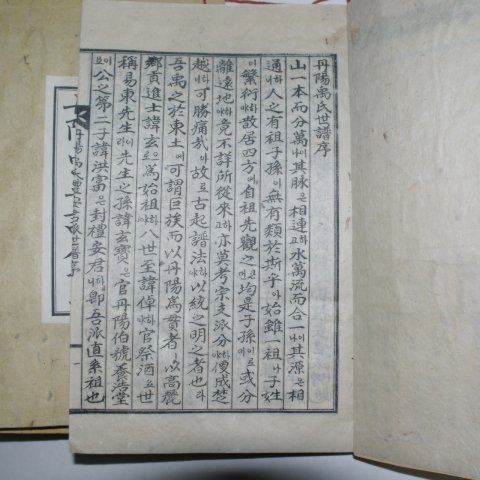 丹陽禹氏世譜序
山一本而分萬나其脉은相連하고水萬流而合一나其源은相
通하니人之有祖子孫이無有類於斯乎아始雖一祖나子姓
이繁衍하야散居四方에自祖先觀之면均是子孫이로되或分
離遠地하야竟不詳所從來하고亦莫考宗支派分하야便成楚
越하니可勝痛哉아故로古起譜法하야以統之明之者也라
吾禹之於東土에可謂巨族而以丹陽爲貫者는以高麗
鄕貢進士諱玄으로爲始祖하야八世至諱倬하야官祭酒요世
稱易東先生이라先生之孫諱玄寶은官丹陽伯號養浩堂
公之第二子諱洪富은封禮安君니卽吾派直系祖也